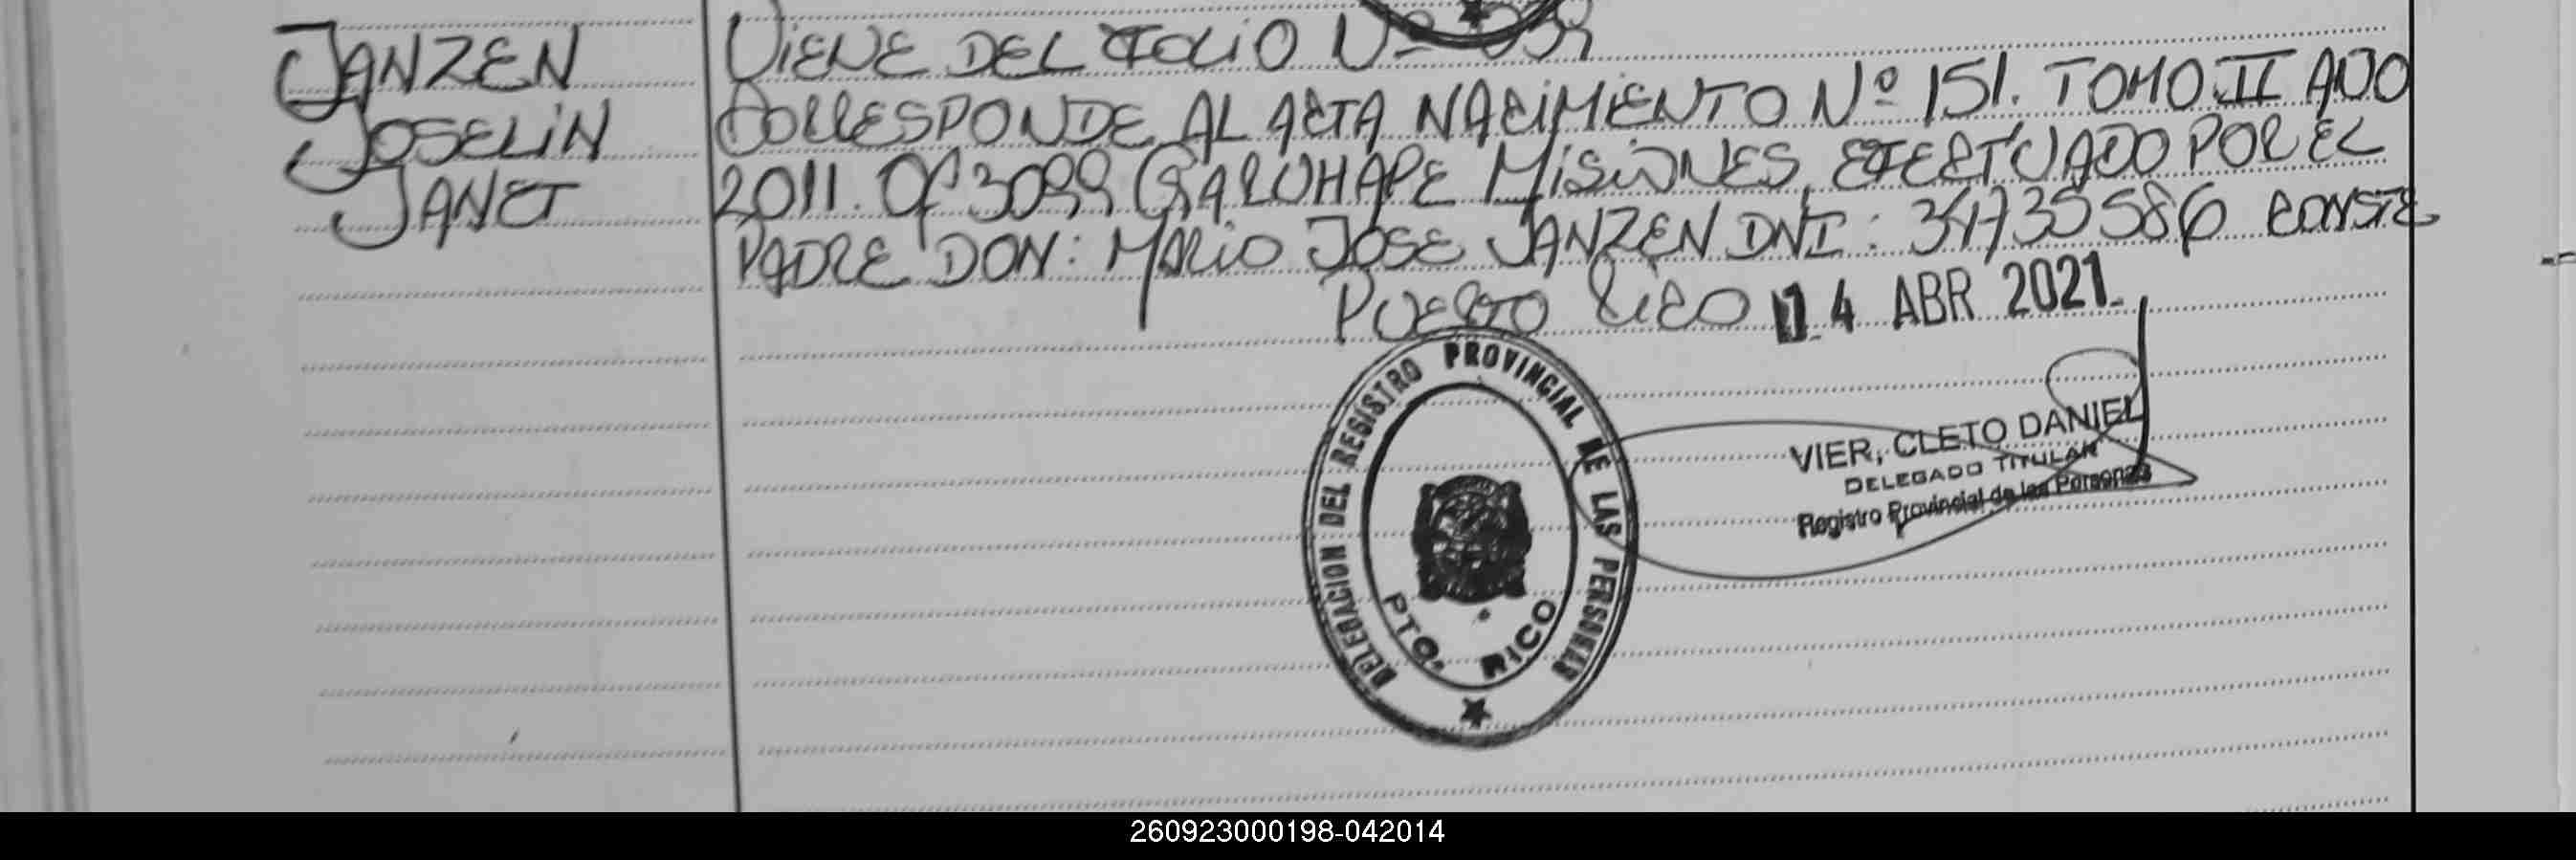 JANZEN
JOSELIN
JANET
VIENE DEL FOLIO Nº 039
CORRESPONDE AL ACTA NACIMIENTO Nº 151. TOMO II AÑO
2011. Of 3099 GARUHAPE MISIONES, EFECTUADO POR EL
PADRE DON: MARIO JOSE JANZEN DNI: 34735586 CONSTE
PUERTO RICO 14 ABR 2021
DELEGACION DEL REGISTRO PROVINCIAL DE LAS PERSONAS
PTO. RICO
VIER, CLETO DANIEL
DELEGADO TITULAR
Registro Provincial de las Personas
260923000198-042014